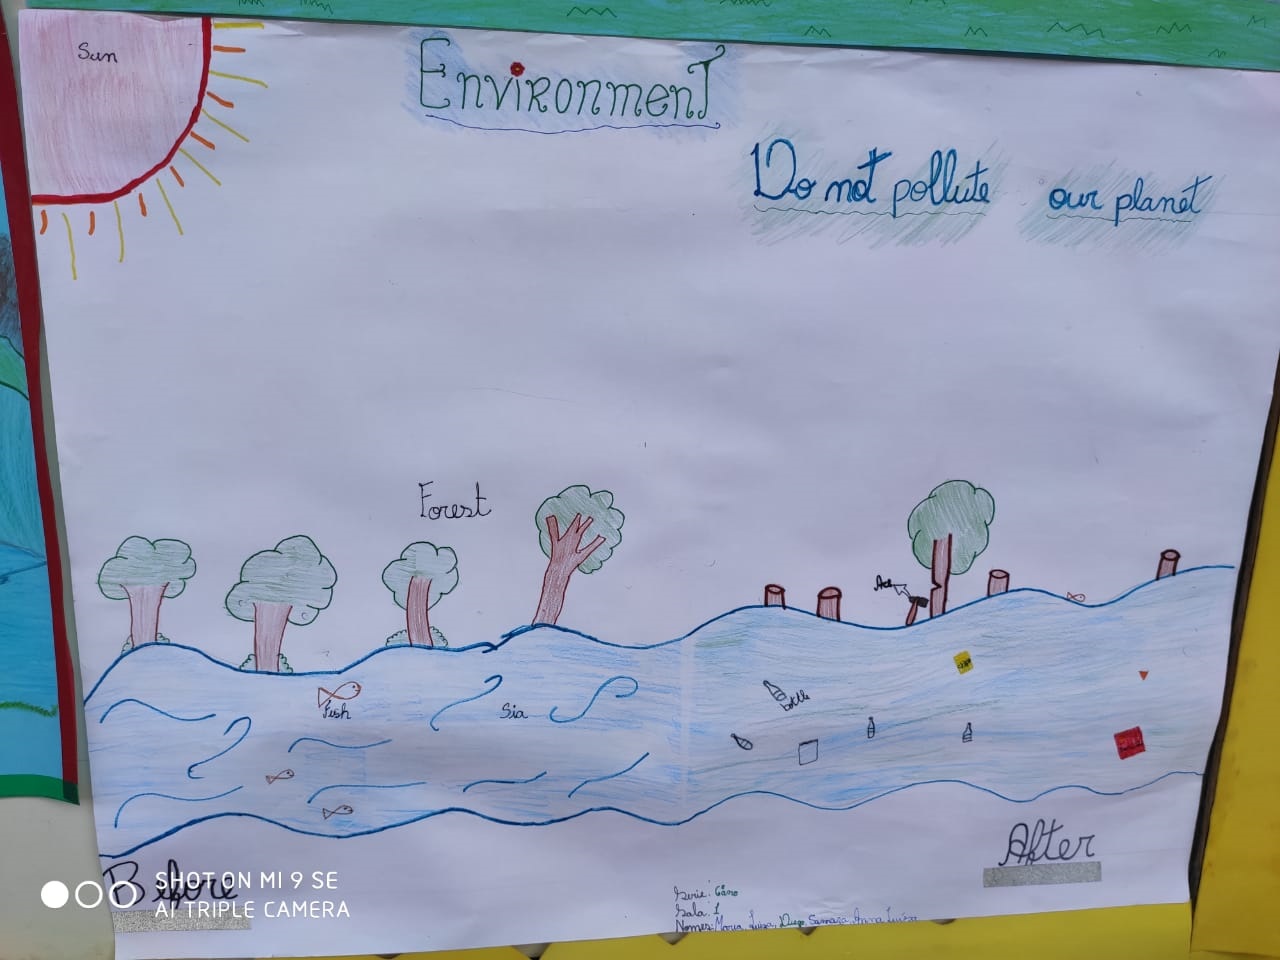 Sun
Environment
Do not pollute our planet
Forest
Ace
Fish
Sia
bottle
Before
After
Série: 6ano
Sala: 1
Nomes: Maria Luisa, Diego, Samara, Anna
SHOT ON MI 9 SE
AI TRIPLE CAMERA